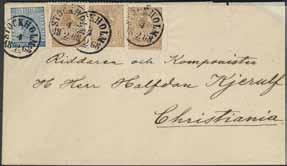 STOCKHOLM
STOCKHOLM
STOCKHOLM
Riddaren och Komponisten
H Herr Halfdan Kjerulf
Christiania